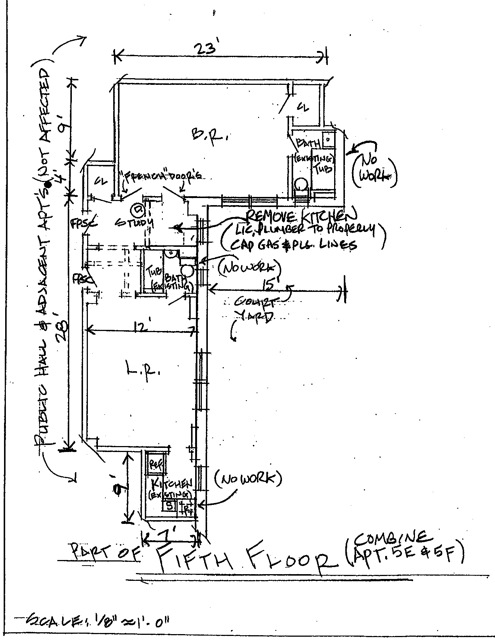 23'
PUBLIC HALL & ADJACENT APT'S. (NOT AFFECTED)
9'
4'
28'
CL
B.R.
BATH
(EXISTING)
TUB
(NO
WORK)
CL
"FRENCH" DOORS
FPSC
STUDY
REMOVE KITCHEN
(LIC. PLUMBER TO PROPERLY
CAP GAS & PLG. LINES)
FPSC
TUB
BATH
(EXISTING)
(NO WORK)
15'
COURT
YARD
12'
L.R.
REF
KITCHEN
(EXISTING)
S
(NO WORK)
9'
7'
PART OF FIFTH FLOOR (COMBINE
APT. 5E & 5F)
SCALE: 1/8" ≈ 1'-0"